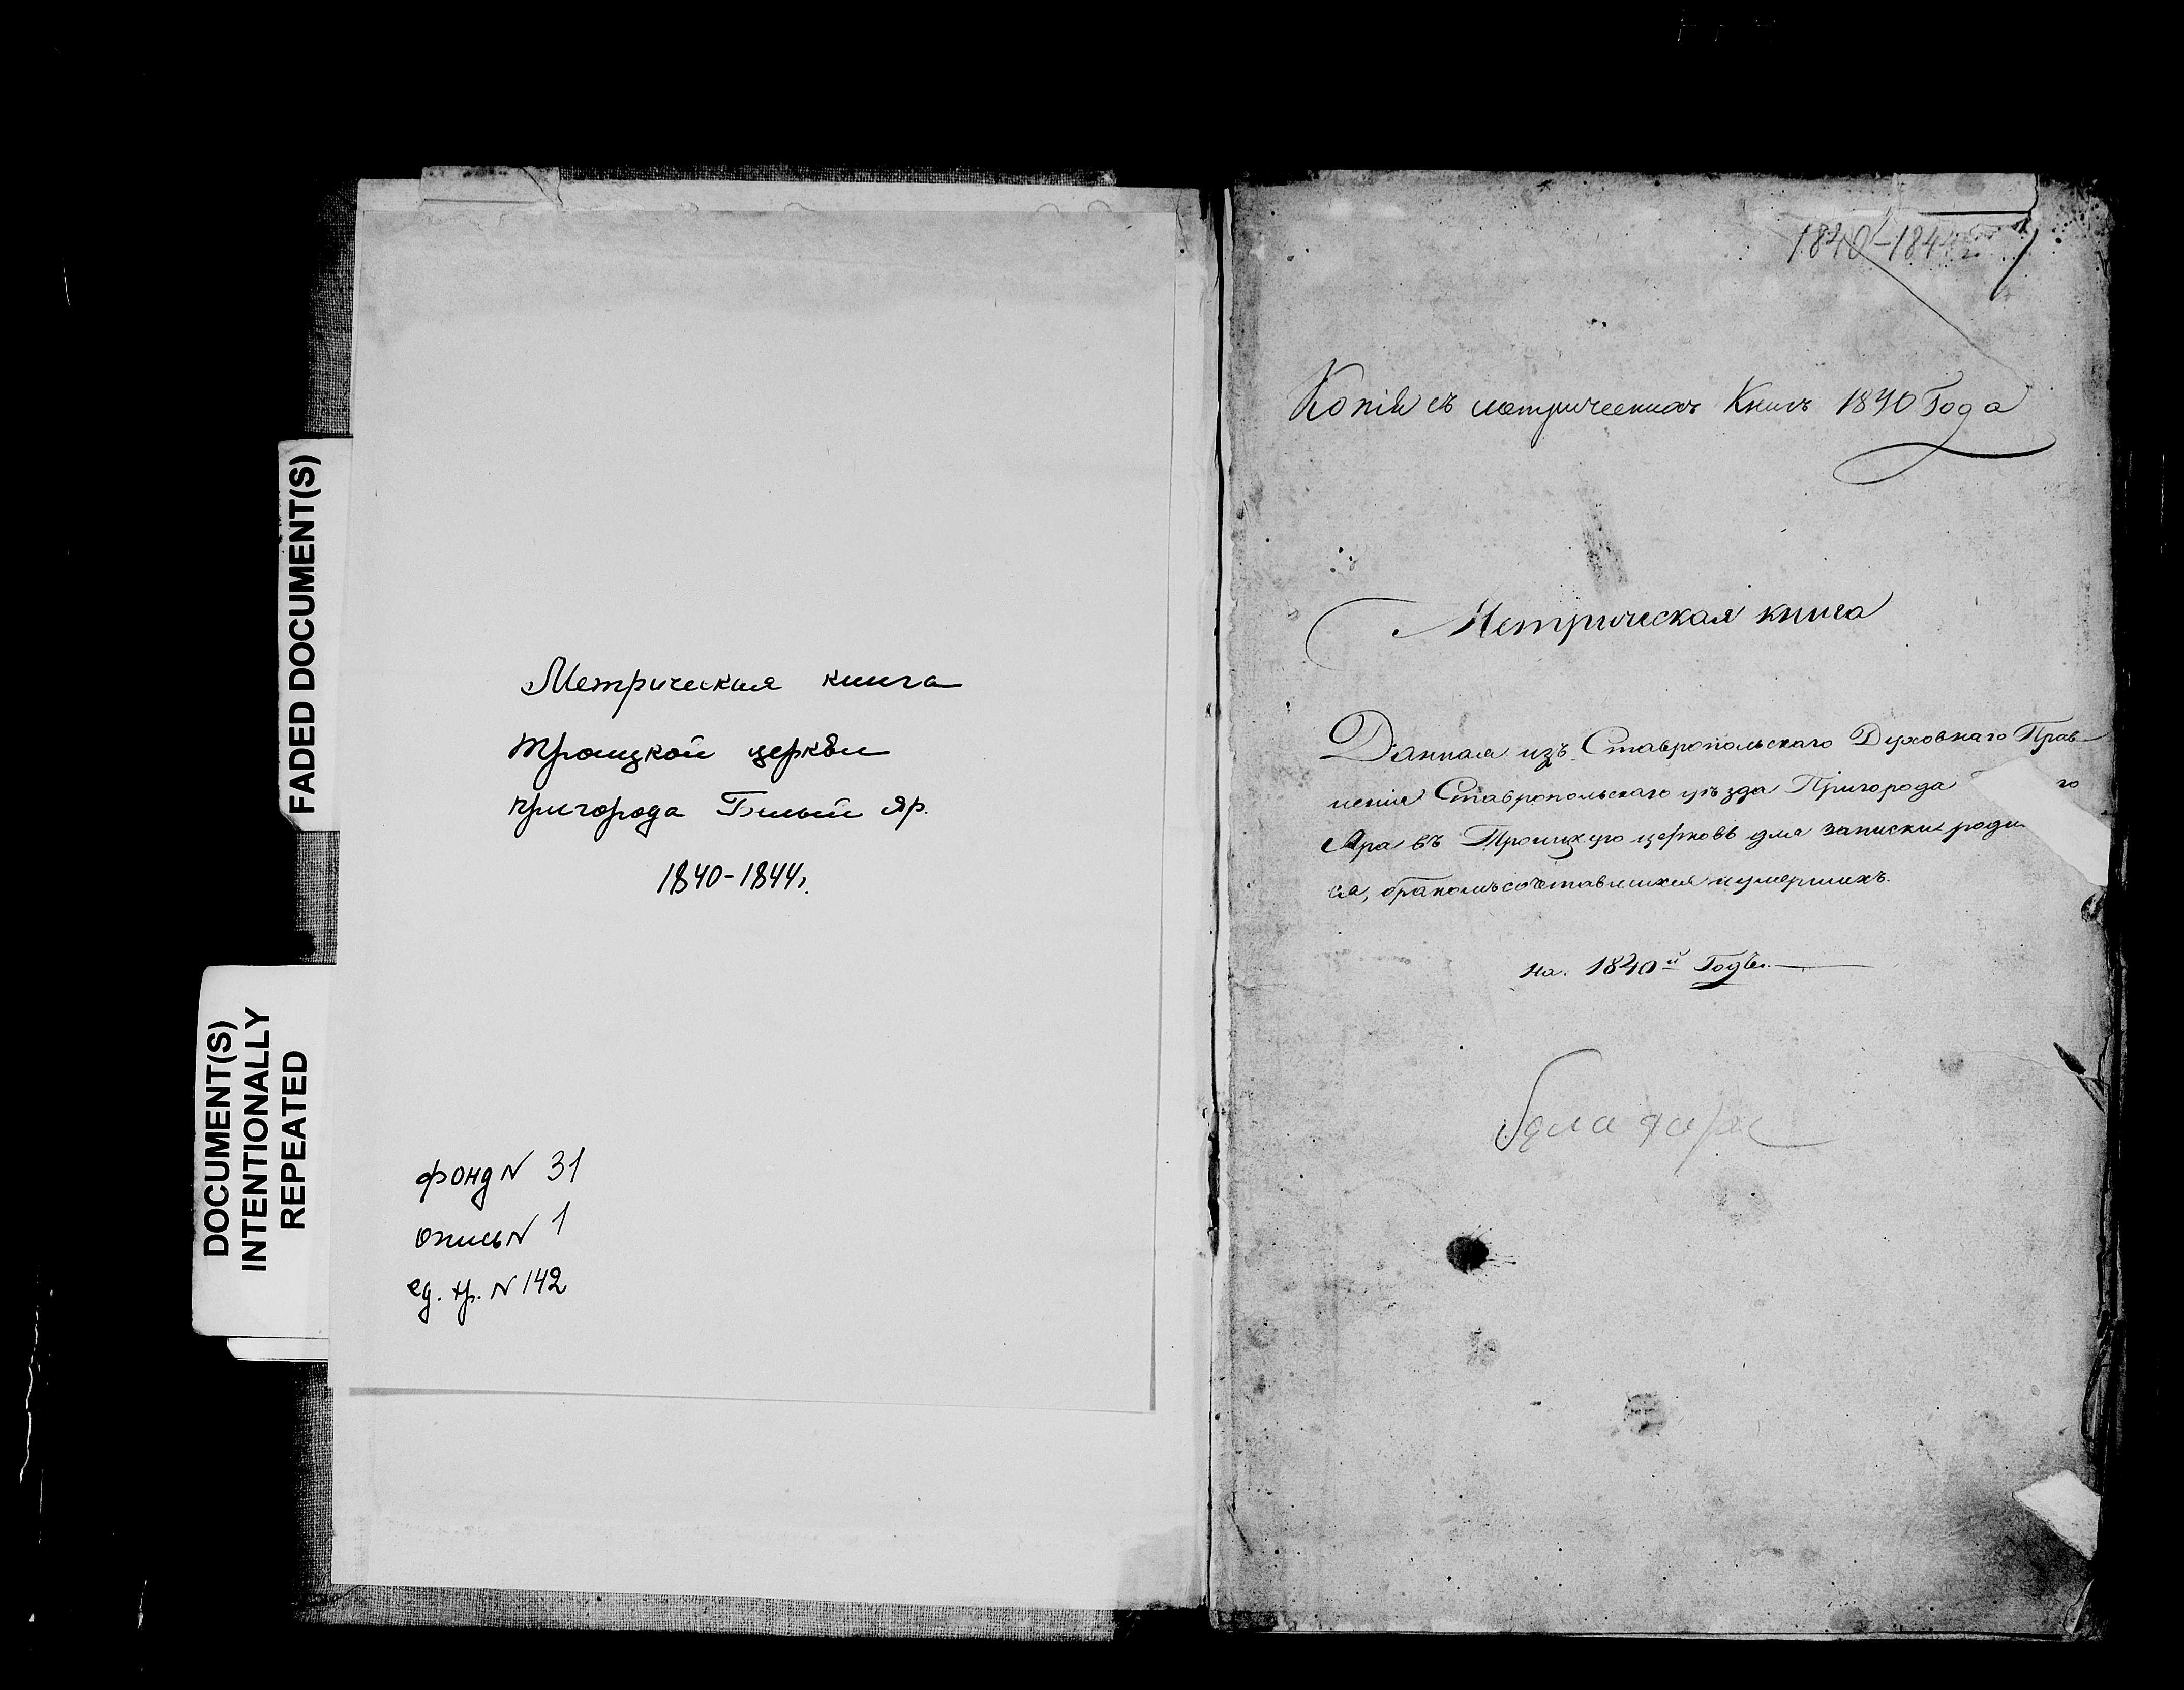 FADED DOCUMENT(S)
DOCUMENT(S)
INTENTIONALLY
REPEATED
Метрическая книга
Троицкой церкви
пригорода Белый Яр.
1840-1844г.
фонд N 31
опись N 1
ед. хр. N 142
1840-1844
1
Копія съ метрическихъ Книгъ 1840 Года
Метрическая книга
Данная изъ Ставропольскаго Духовнаго Прав-
ленія Ставропольскаго уѣзда Пригорода го
Яра въ Троицкую церковь для записки роди
ся, бракомъ сочетавшихся и умершихъ.
на 1840й Годъ.